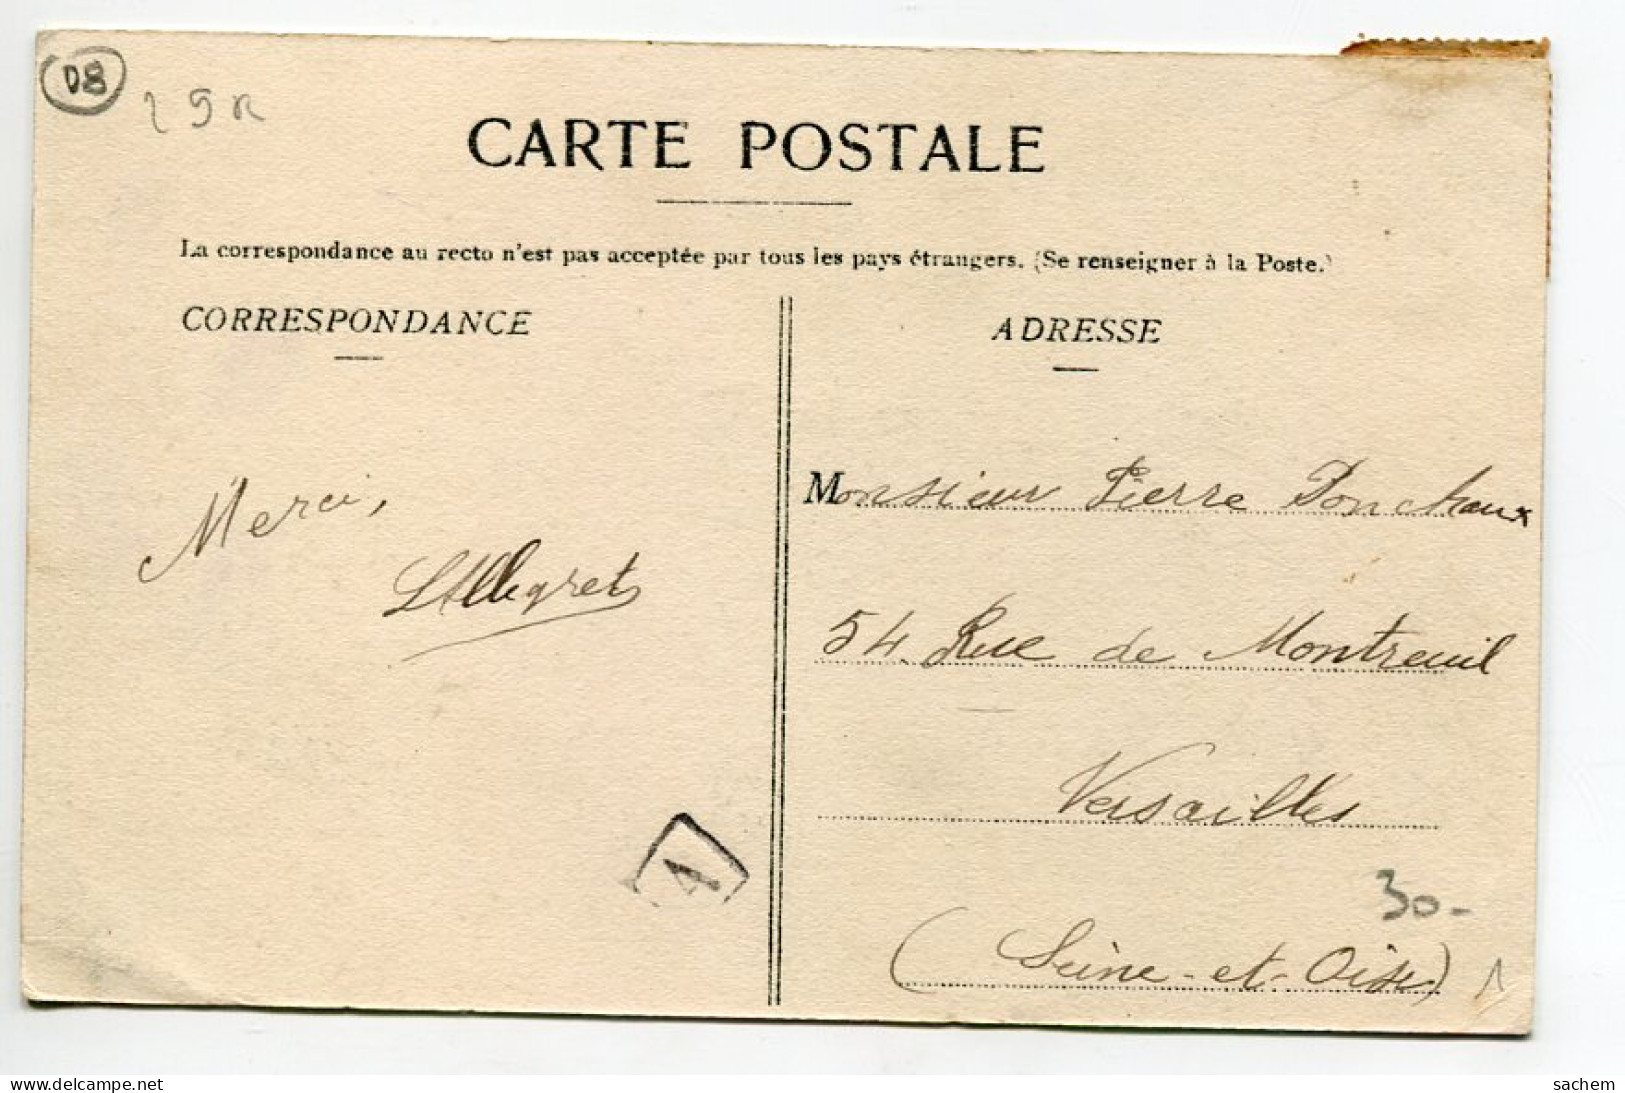 D8
CARTE POSTALE
La correspondance au recto n'est pas acceptée par tous les pays étrangers. (Se renseigner à la Poste.)
CORRESPONDANCE
ADRESSE
Merci,
LAllegret
Monsieur Pierre Ponchaux
54 Rue de Montreuil
Versailles
30-
(Seine-et-Oise)
1
www.delcampe.net
sachem